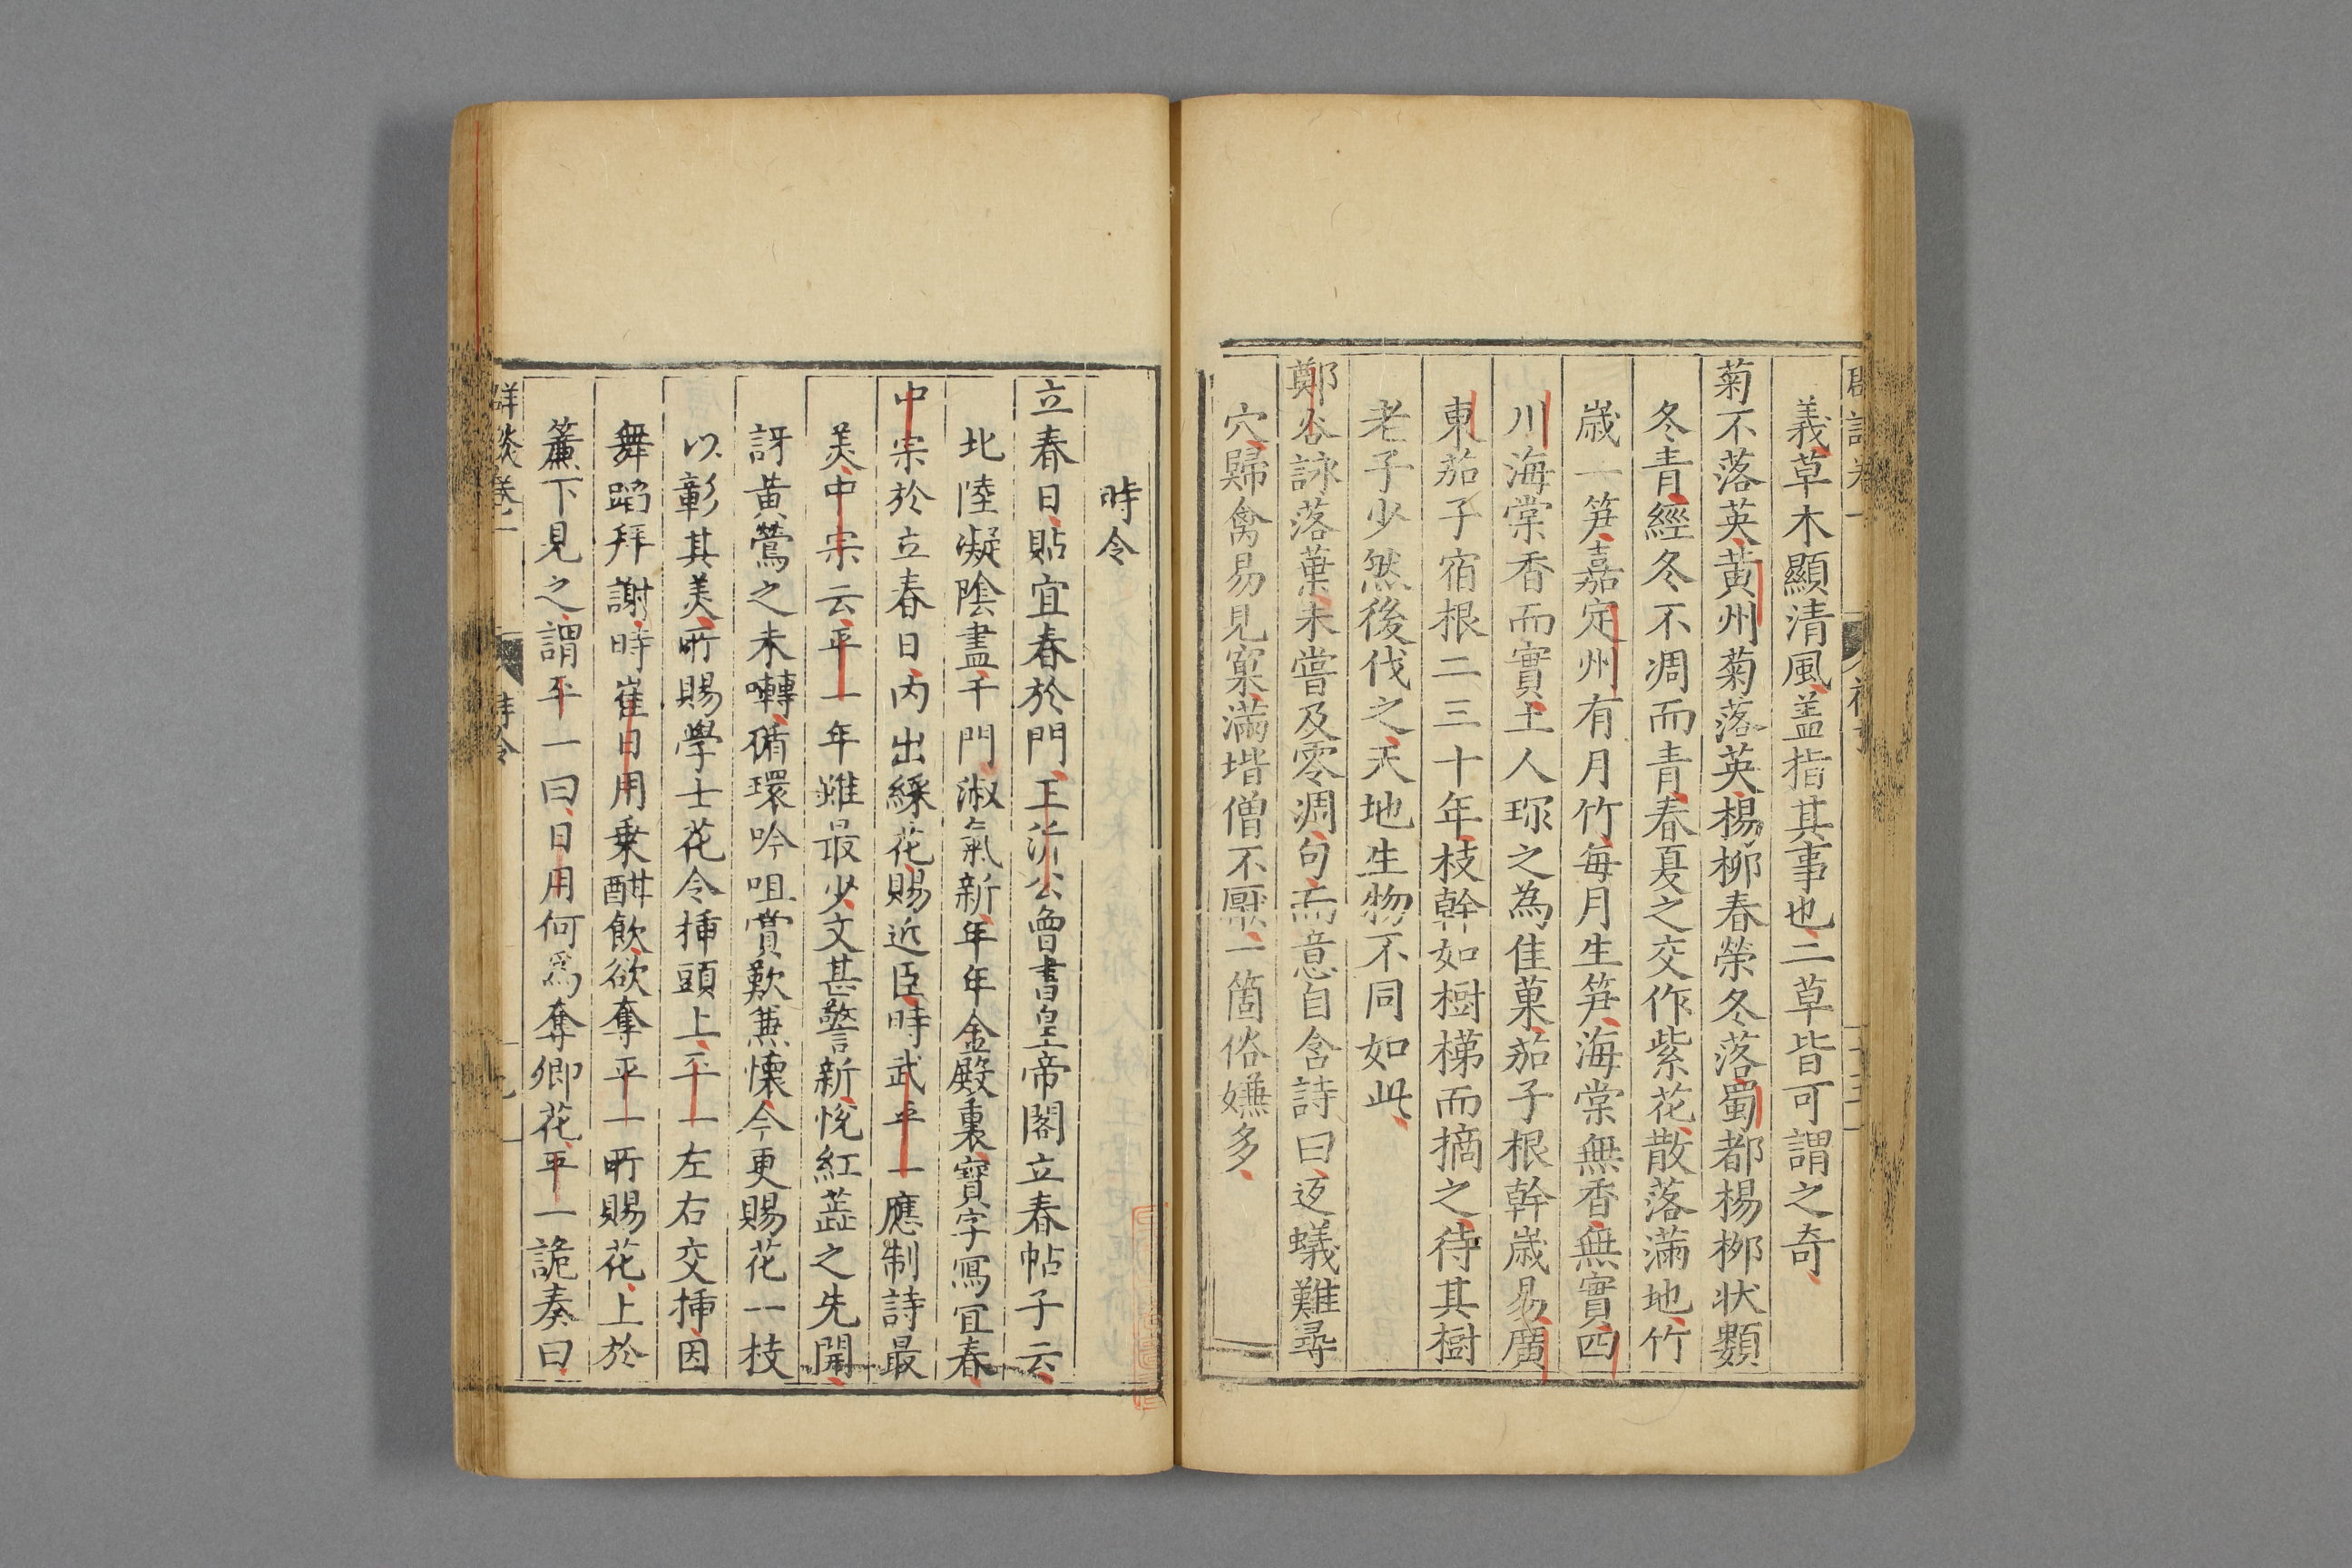 義草木顯清風盖指其事也二草皆可謂之奇
菊不落英黄州菊落英楊柳春榮冬落蜀都楊栁状類
冬青經冬不凋而青春夏之交作紫花散落滿地竹
歳一笋嘉定州有月竹每月生笋海棠無香無實四
川海棠香而實土人珎之為佳菓茄子根幹歳易廣
東茄子宿根二三十年枝幹如樹梯而摘之待其樹
老子少然後伐之天地生物不同如此
鄭谷詠落葉未嘗及零凋句而意自含詩曰返蟻難尋
穴歸禽易見窠滿堦僧不厭一箇俗嫌多
時令
立春日貼宜春於門王沂公曾書皇帝閣立春帖子云
北陸凝陰盡千門淑氣新年年金殿裏寳字寫宜春
中宗於立春日内出綵花賜近臣時武平一應制詩最
美中宗云平一年雖最少文甚警新悅紅蕋之先開
訝黄鶯之未囀循環吟咀賞歎兼懐今更賜花一枝
以彰其美所賜學士花令挿頭上平一左右交挿因
舞蹈拜謝時崔日用乗酣飲欲奪平一所賜花上於
簾下見之謂平一曰日用何爲奪卿花平一詭奏曰
群談卷一 時令